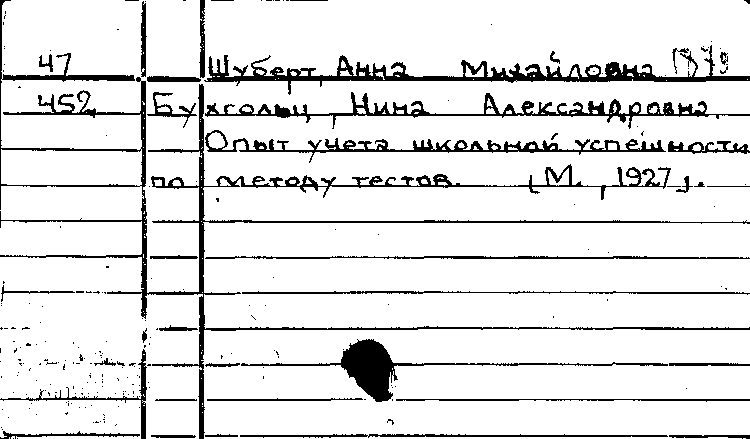 47 Шуберт, Анна Михайловна 1879
452 Бухгольц, Нина Александровна.
Опыт учета школьной успешности
по методу тестов. [М., 1927].